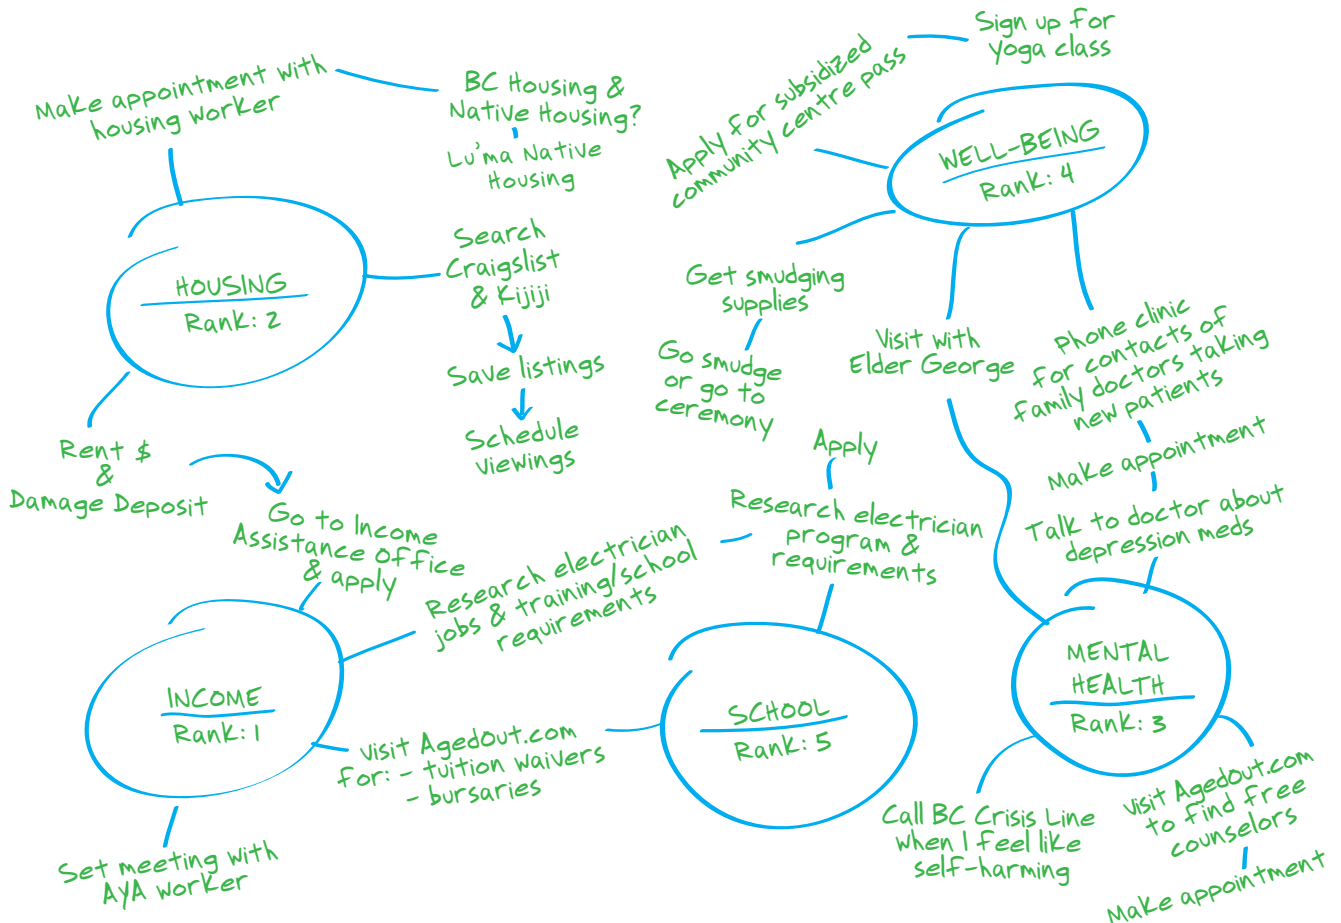 Make appointment with
housing worker
BC Housing &
Native Housing?
Lu'ma Native
Housing
HOUSING
Rank: 2
Search
Craigslist
& Kijiji
Save listings
Schedule
viewings
Rent $
&
Damage Deposit
Go to Income
Assistance Office
& apply
INCOME
Rank: 1
Research electrician
jobs & training/school
requirements
visit AgedOut.com
for: - tuition waivers
- bursaries
Set meeting with
AYA worker
SCHOOL
Rank: 5
Research electrician
program &
requirements
Apply
Sign up for
yoga class
Apply for subsidized
community centre pass
WELL-BEING
Rank: 4
Get smudging
supplies
Go smudge
or go to
ceremony
Visit with
Elder George
Phone clinic
for contacts of
family doctors taking
new patients
Make appointment
Talk to doctor about
depression meds
MENTAL
HEALTH
Rank: 3
Call BC Crisis Line
when I feel like
self-harming
visit AgedOut.com
to find free
counselors
Make appointment